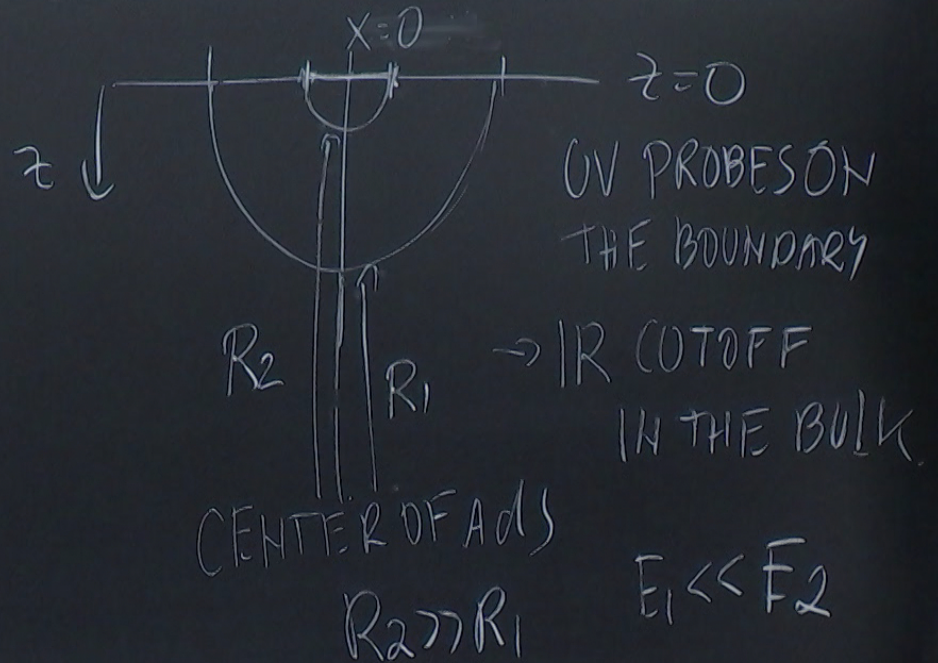 x=0
z=0
z
UV PROBES ON
THE BOUNDARY
R₂
R₁
→ IR CUTOFF
IN THE BULK
CENTER OF AdS
R₂>>R₁
E₁<<E₂